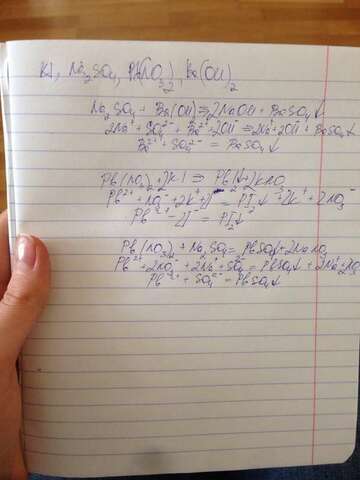 KI, Na₂SO₄, Pb(NO₃)₂, Ba(OH)₂
Na₂SO₄ + Ba(OH)₂ ⇒ 2NaOH + BaSO₄↓
2Na⁺ + SO₄²⁻ + Ba²⁺ + 2OH⁻ ⇒ 2Na⁺ + 2OH⁻ + BaSO₄↓
Ba²⁺ + SO₄²⁻ = BaSO₄↓
Pb(NO₃)₂ + 2KI ⇒ PbI₂↓ + 2KNO₃
Pb²⁺ + NO₃⁻ + 2K⁺ + I⁻ = PI₂↓ + 2K⁺ + 2NO₃⁻
Pb²⁺ - 2I⁻ = PI₂↓
Pb(NO₃)₂ + Na₂SO₄ = PbSO₄ + 2NaNO₃
Pb²⁺ + 2NO₃⁻ + 2Na⁺ + SO₄²⁻ = PbSO₄↓ + 2Na⁺ + 2NO₃⁻
Pb²⁺ + SO₄²⁻ = PbSO₄↓